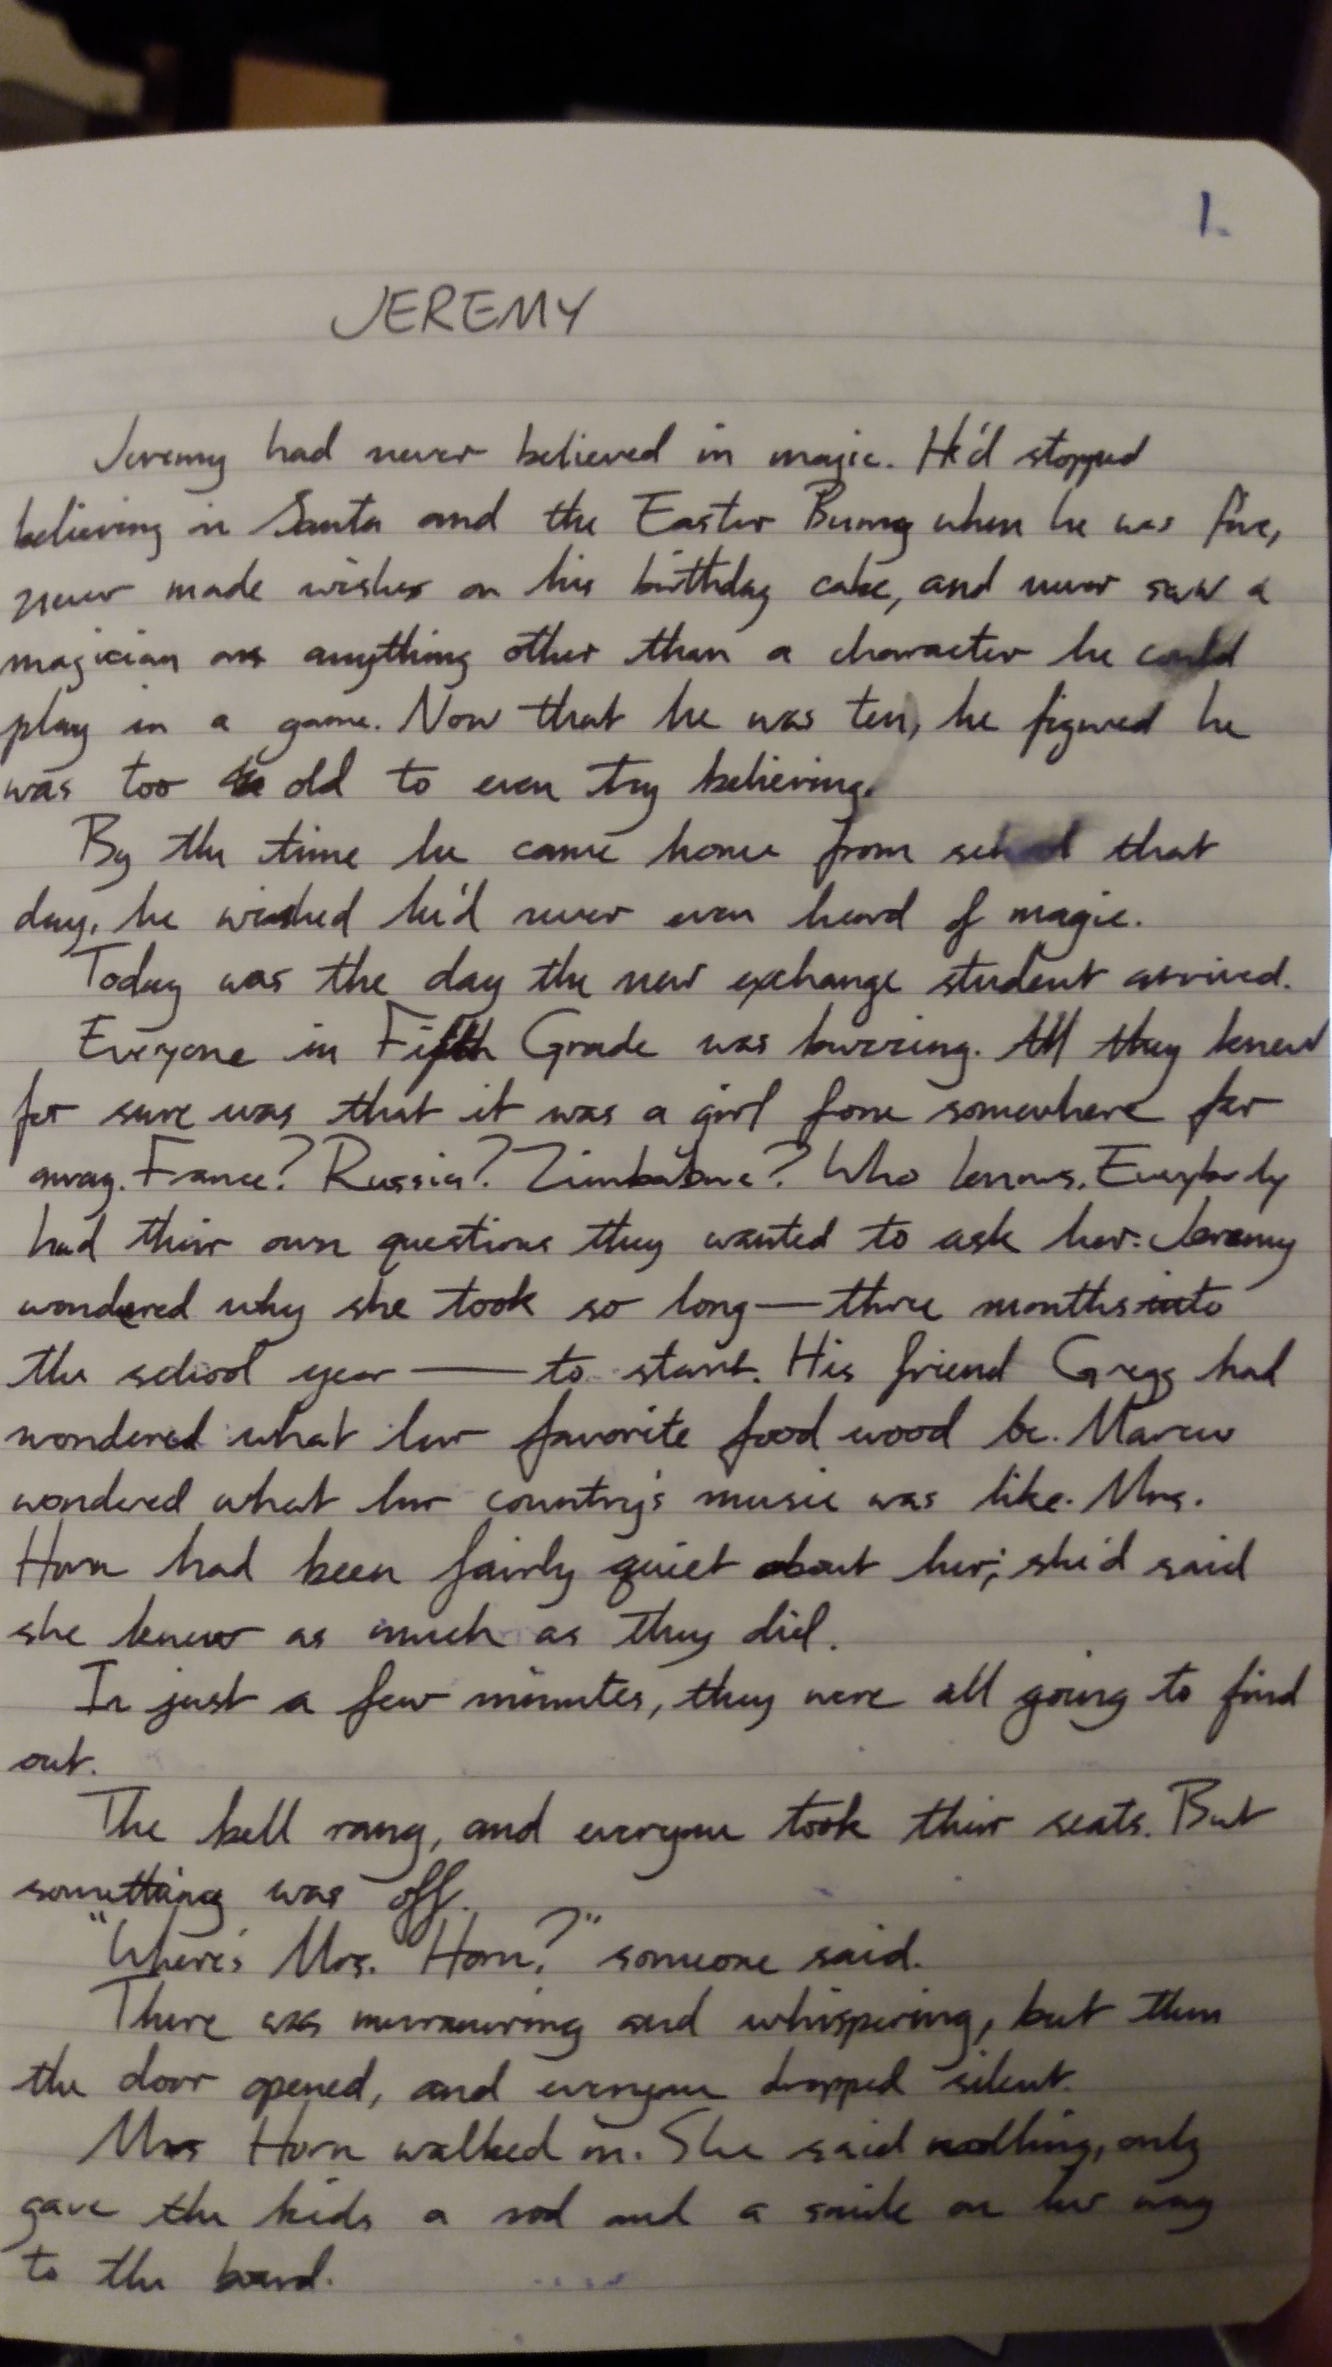 1.
JEREMY
Jeremy had never believed in magic. He'd stopped
believing in Santa and the Easter Bunny when he was five,
never made wishes on his birthday cake, and never saw a
magician as anything other than a character he could
play in a game. Now that he was ten, he figured he
was too old to even try believing.
By the time he came home from school that
day, he wished he'd never even heard of magic.
Today was the day the new exchange student arrived.
Everyone in Fifth Grade was buzzing. All they knew
for sure was that it was a girl from somewhere far
away. France? Russia? Zimbabwe? Who knows. Everybody
had their own questions they wanted to ask her. Jeremy
wondered why she took so long—three months into
the school year—to start. His friend Gregg had
wondered what her favorite food wood be. Marcus
wondered what her country's music was like. Mrs.
Horn had been fairly quiet about her; she'd said
she knew as much as they did.
In just a few minutes, they were all going to find
out.
The bell rang, and everyone took their seats. But
something was off.
"Where's Mrs. Horn?" someone said.
There was murmuring and whispering, but then
the door opened, and everyone dropped silent.
Mrs Horn walked in. She said nothing, only
gave the kids a nod and a smile on her way
to the board.